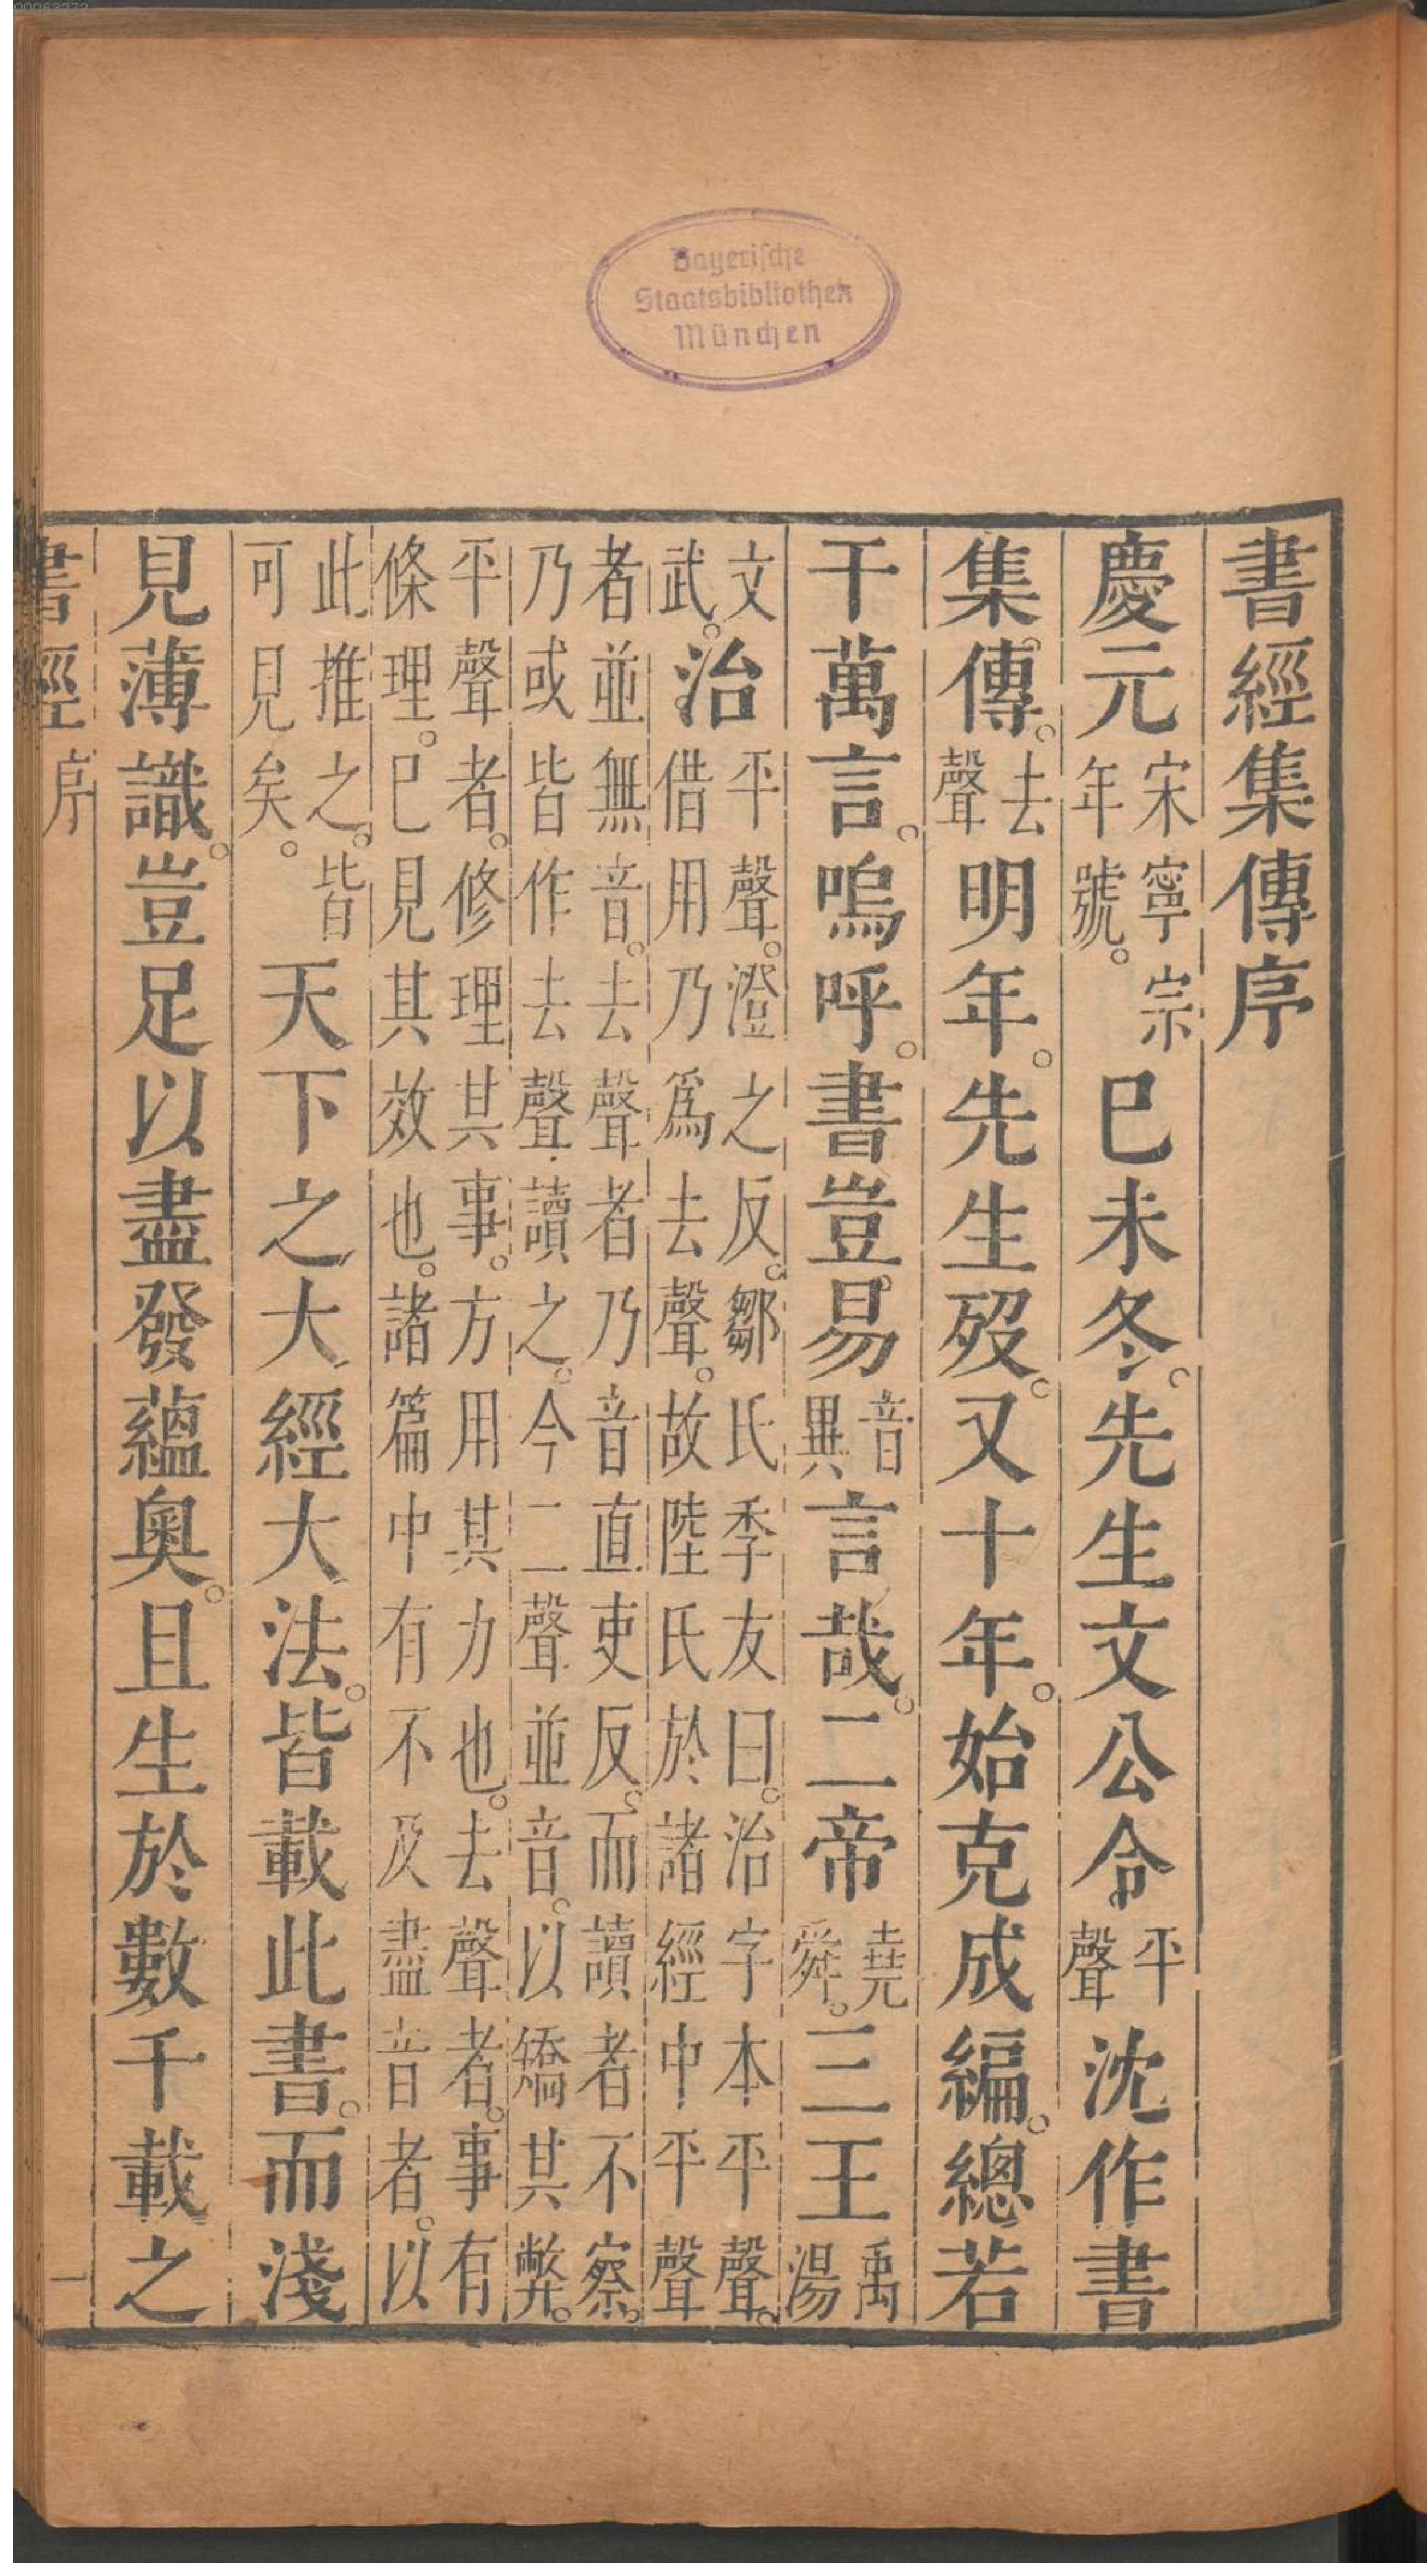 Bayerische
Staatsbibliothek
München
書經集傳序
慶元宋寧宗年號。巳未冬。先生文公令平聲沈作書
集傳。去聲明年。先生歿。又十年。始克成編。總若
干萬言。嗚呼。書豈易音異言哉。二帝堯舜。三王禹湯
文武。治平聲。澄之反。鄒氏季友曰。治字本平聲。借用乃爲去聲。故陸氏於諸經中平聲
者並無音。去聲者乃音直吏反。而讀者不察。乃或皆作去聲讀之。今二聲並音。以矯其弊。
平聲者。修理其事。方用其力也。去聲者。事有條理。巳見其效也。諸篇中有不及盡音者。以
此推之。皆可見矣。天下之大經大法。皆載此書。而淺
見薄識。豈足以盡發蘊奧。且生於數千載之
書經 序 一